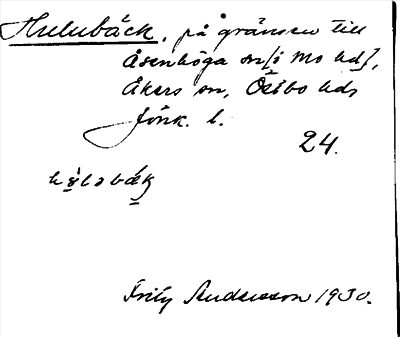 Hulubäck, på gränsen till
Åsenhöga sn [i Mo hd],
Åkers sn, Östbo hd,
Jönk. l.
24.
Fritz Andersson 1930.